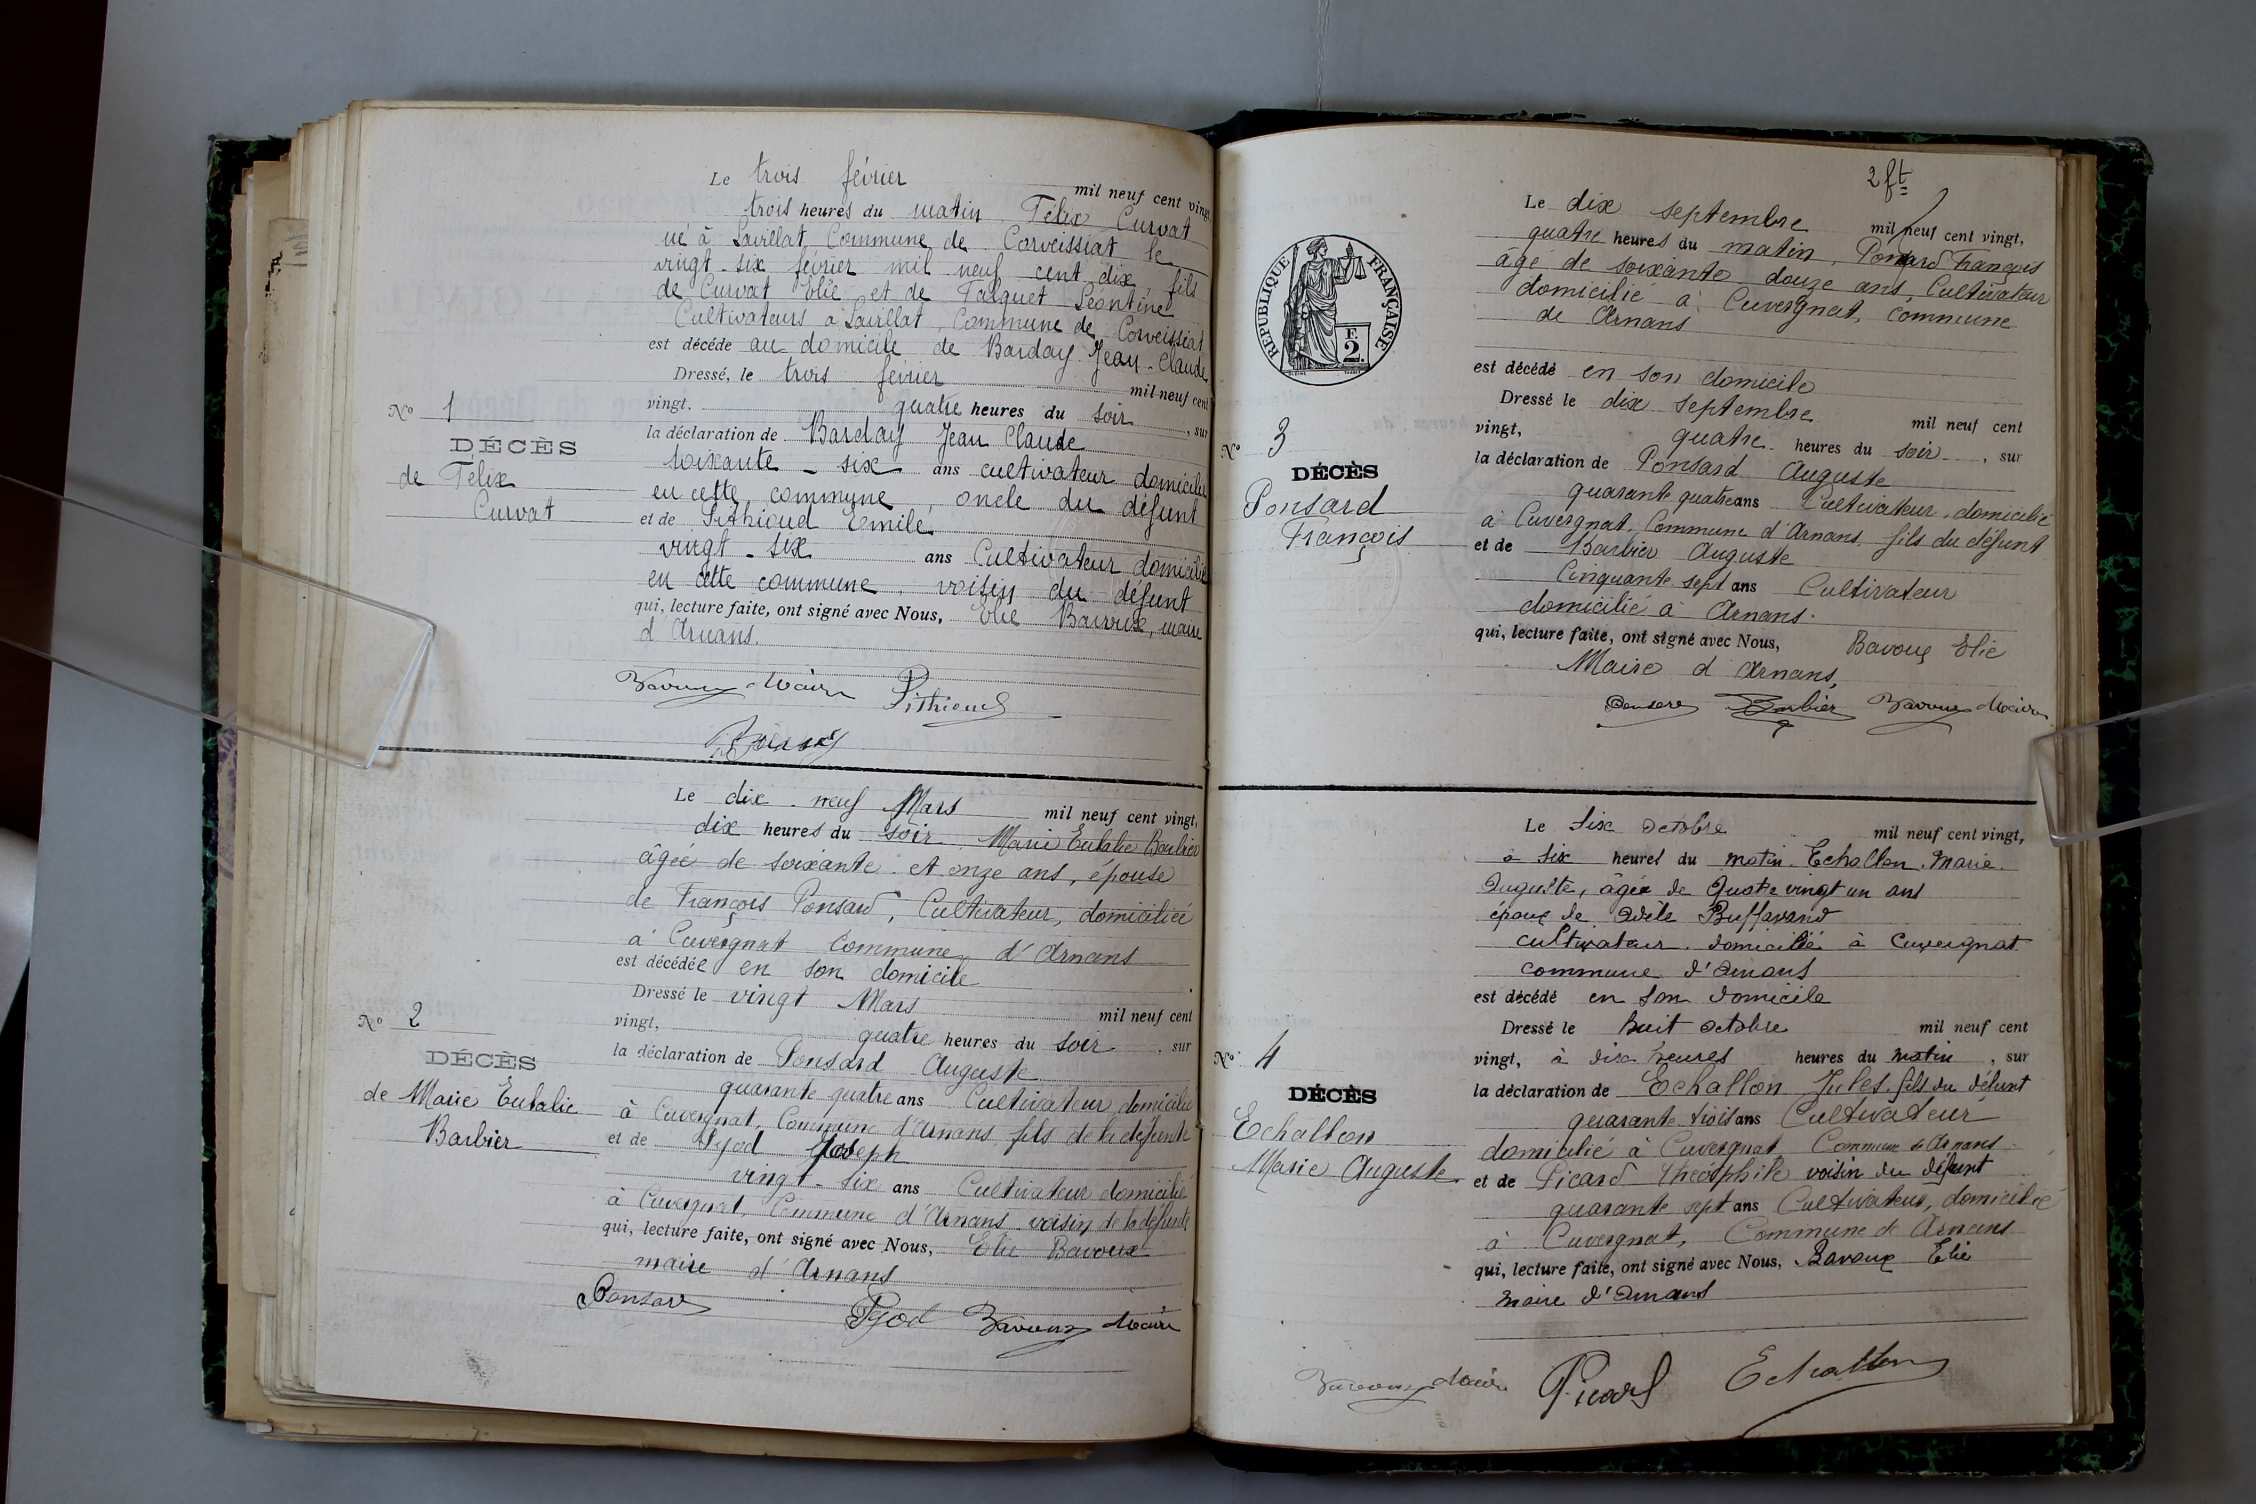 Le trois février mil neuf cent vingt
trois heures du matin Félix Curvat
né à Commune de Corveissiat le
vingt-six février mil neuf cent dix, fils
de Curvat Elie et de Falquet Léontine
Cultivateurs à Commune de Corveissiat
est décédé au domicile de Barday Jean-Claude
Dressé, le trois février mil neuf cent
vingt, quatre heures du soir, sur
la déclaration de Barday Jean Claude
soixante-six ans cultivateur domicilié
en cette commune, oncle du défunt
et de Pithioud Emile
vingt-six ans Cultivateur domicilié
en cette commune, voisin du défunt
qui, lecture faite, ont signé avec Nous, Elie maire
d'Arnans.
Bavoux Maire Pithioud
No 1
DÉCÈS
de Félix
Curvat
Le dix-neuf Mars mil neuf cent vingt,
dix heures du soir, Marie Eulalie Barbier
âgée de soixante et onze ans, épouse
de François Ponsard, Cultivateur, domiciliée
à Cuvergnat commune d'Arnans
est décédée en son domicile
Dressé le vingt Mars mil neuf cent
vingt, quatre heures du soir, sur
la déclaration de Ponsard Auguste
quarante quatre ans Cultivateur, domicilié
à Cuvergnat, Commune d'Arnans, fils de la défunte
et de Pyod Joseph
vingt-six ans Cultivateur domicilié
à Cuvergnat, Commune d'Arnans voisin de la défunte
qui, lecture faite, ont signé avec Nous, Elie Bavoux
maire d'Arnans
Ponsard Pyod Bavoux Maire
No 2
DÉCÈS
de Marie Eulalie
Barbier
2 ft
RÉPUBLIQUE FRANÇAISE
F.
2.
Le dix septembre mil neuf cent vingt,
quatre heures du matin, Ponsard François
âgé de soixante douze ans, Cultivateur
domicilié à Cuvergnat, commune
de Arnans
est décédé en son domicile
Dressé le dix septembre mil neuf cent
vingt, quatre heures du soir, sur
la déclaration de Ponsard Auguste
quarante quatre ans Cultivateur, domicilié
à Cuvergnat, Commune d'Arnans, fils du défunt
et de Barbier Auguste
Cinquante sept ans Cultivateur
domicilié à Arnans.
qui, lecture faite, ont signé avec Nous, Bavoux Elie
Maire d'Arnans,
Ponsard Barbier Bavoux Maire
No 3
DÉCÈS
Ponsard
François
Le six octobre mil neuf cent vingt,
à six heures du matin Echallon Marie
Auguste, âgée de quatre vingt un ans
époux de Adèle Buffavand
cultivateur domicilié à Cuvergnat
commune d'Arnans
est décédé en son domicile
Dressé le huit octobre mil neuf cent
vingt, à dix heures heures du matin, sur
la déclaration de Echallon Jules, fils du défunt
quarante trois ans Cultivateur
domicilié à Cuvergnat Commune de Arnans
et de Picard Théophile voisin du défunt
quarante sept ans Cultivateur, domicilié
à Cuvergnat, Commune de Arnans
qui, lecture faite, ont signé avec Nous, Bavoux Elie
maire d'Arnans
Bavoux Maire Picard Echallon
No 4
DÉCÈS
Echallon
Marie Auguste